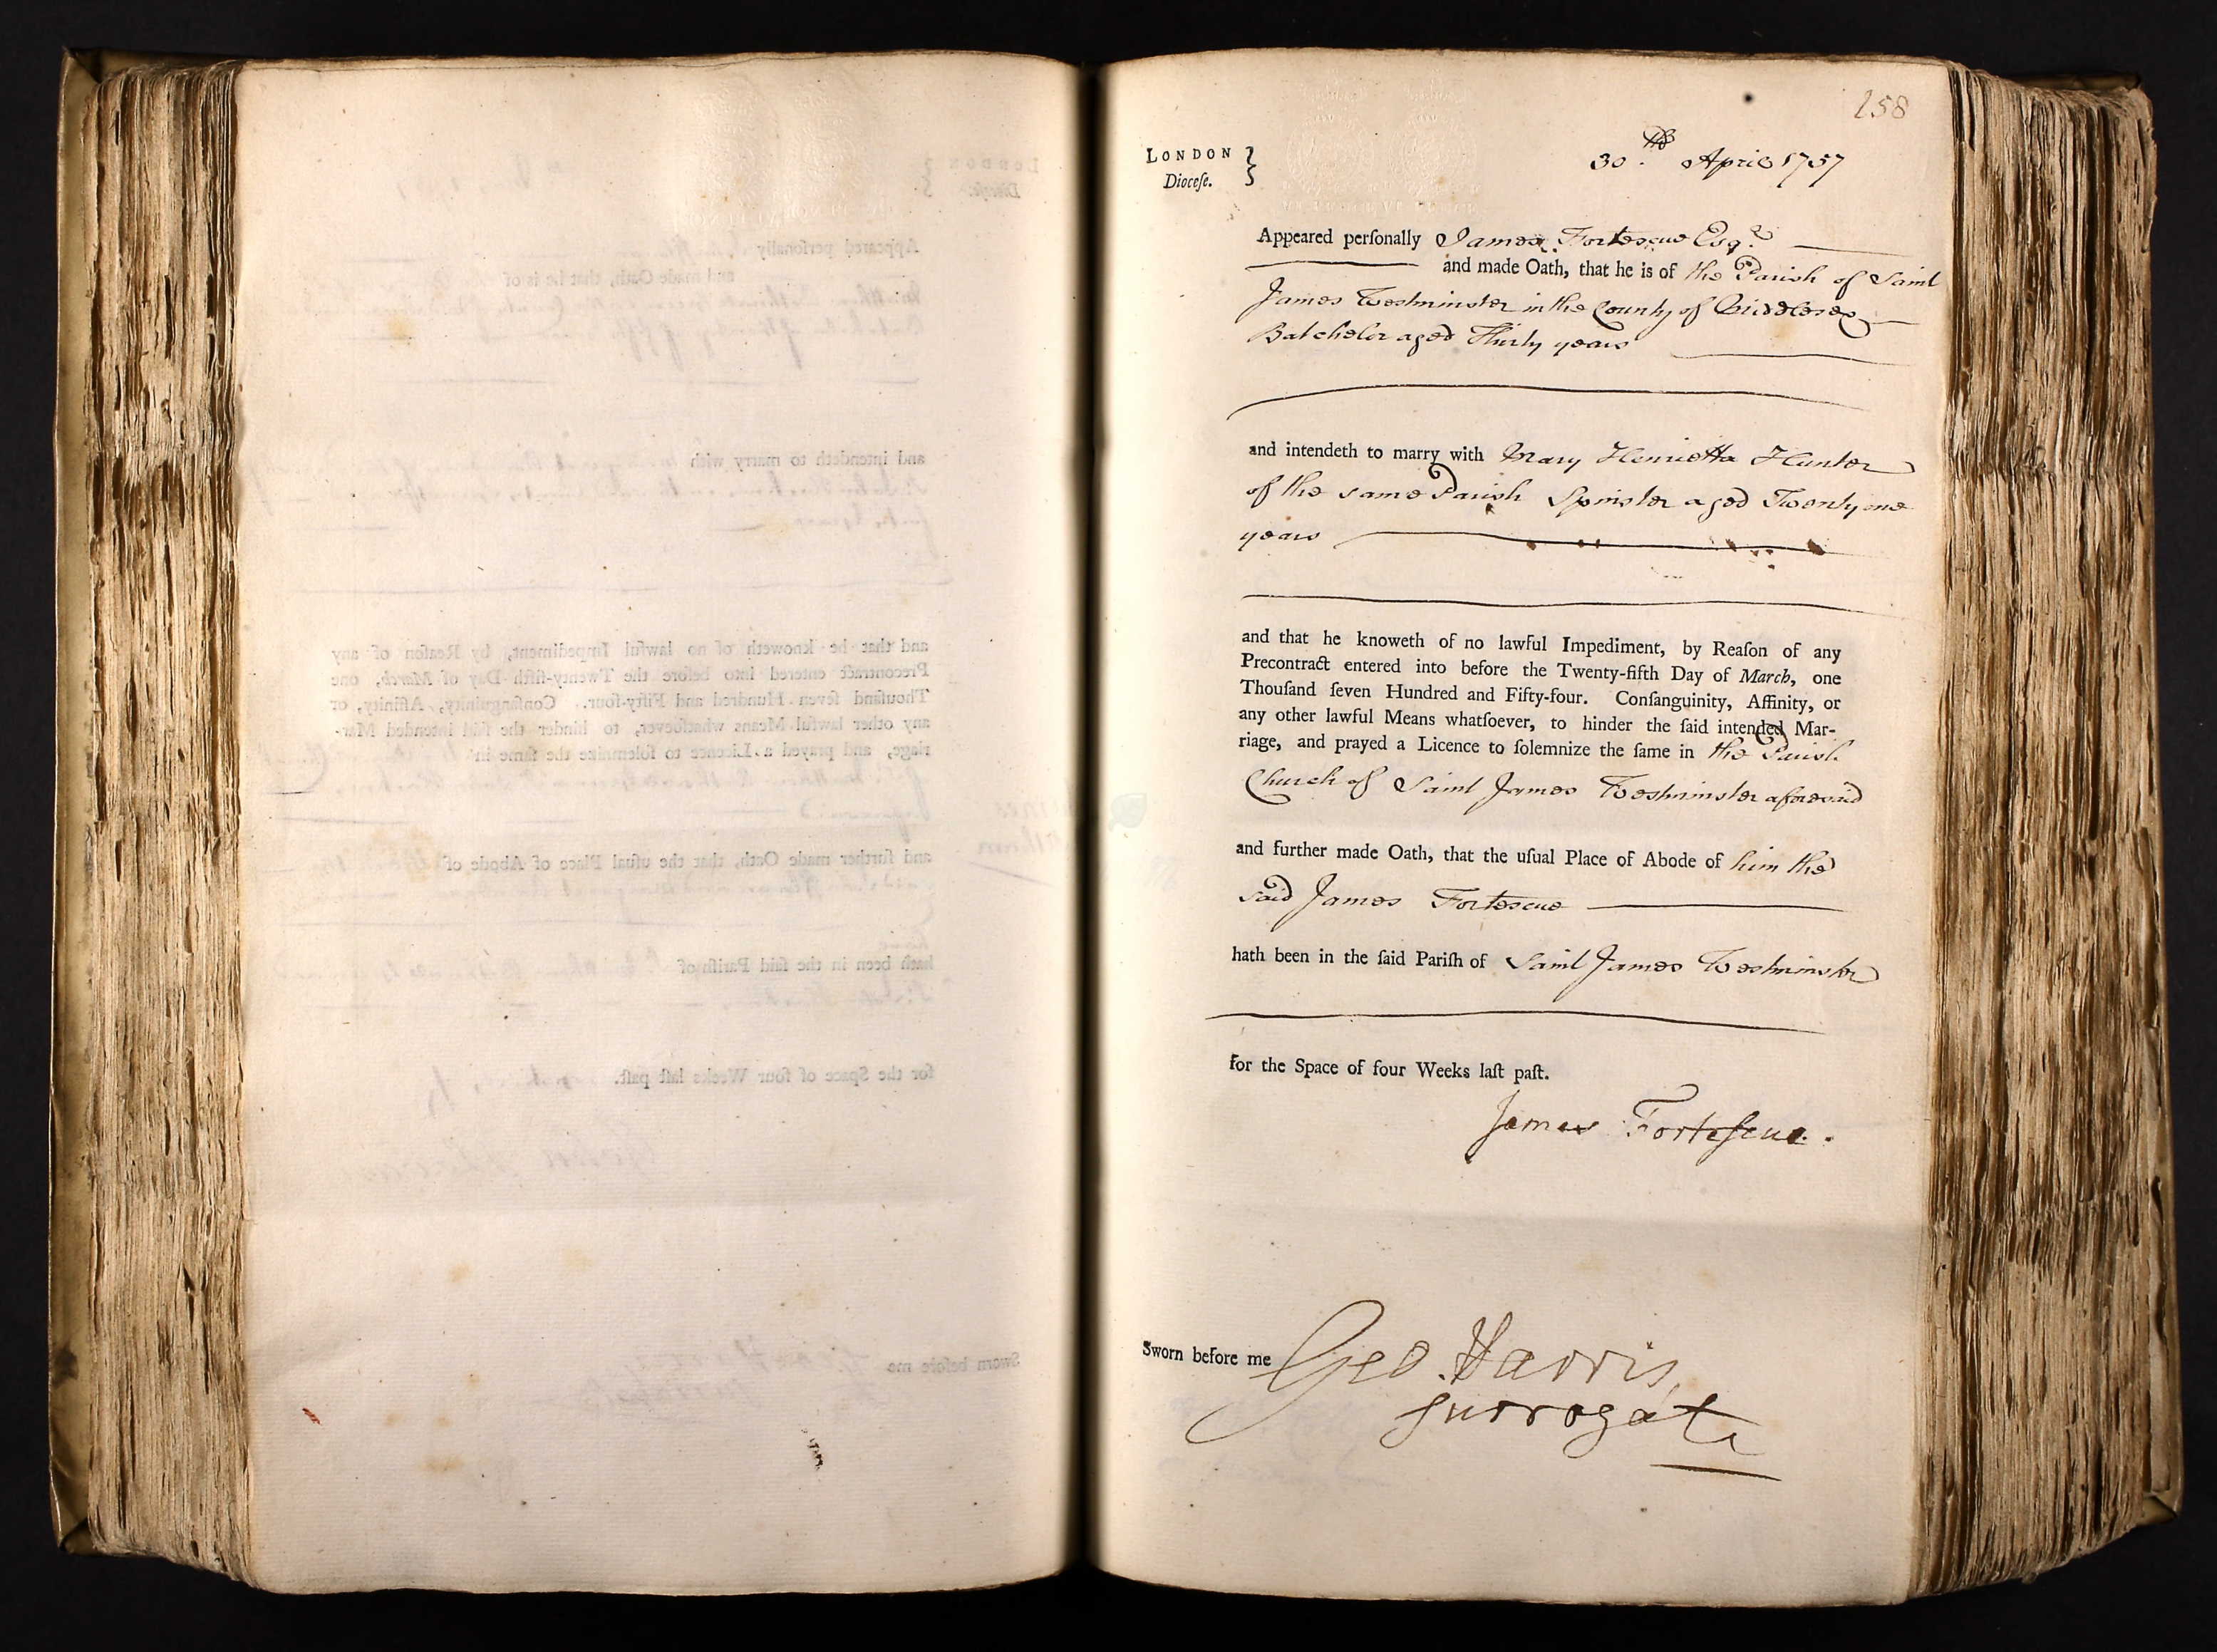 158
LONDON }
Dioceſe. }
30.th April 1757
Appeared perſonally James Fortescue Esqr.
and made Oath, that he is of the Parish of Saint
James Westminster in the County of Middlesex
Batchelor aged Thirty years
and intendeth to marry with Mary Henrietta Hunter
of the same Parish Spinster aged Twenty one
years
and that he knoweth of no lawful Impediment, by Reaſon of any
Precontract entered into before the Twenty-fifth Day of March, one
Thouſand ſeven Hundred and Fifty-four. Conſanguinity, Affinity, or
any other lawful Means whatſoever, to hinder the ſaid intended Mar-
riage, and prayed a Licence to ſolemnize the ſame in the Parish
Church of Saint James Westminster aforesaid
and further made Oath, that the uſual Place of Abode of him the
said James Fortescue
hath been in the ſaid Pariſh of Saint James Westminster
for the Space of four Weeks laſt paſt.
James Forteſcue.
Sworn before me Geo. Harris,
Surrogate